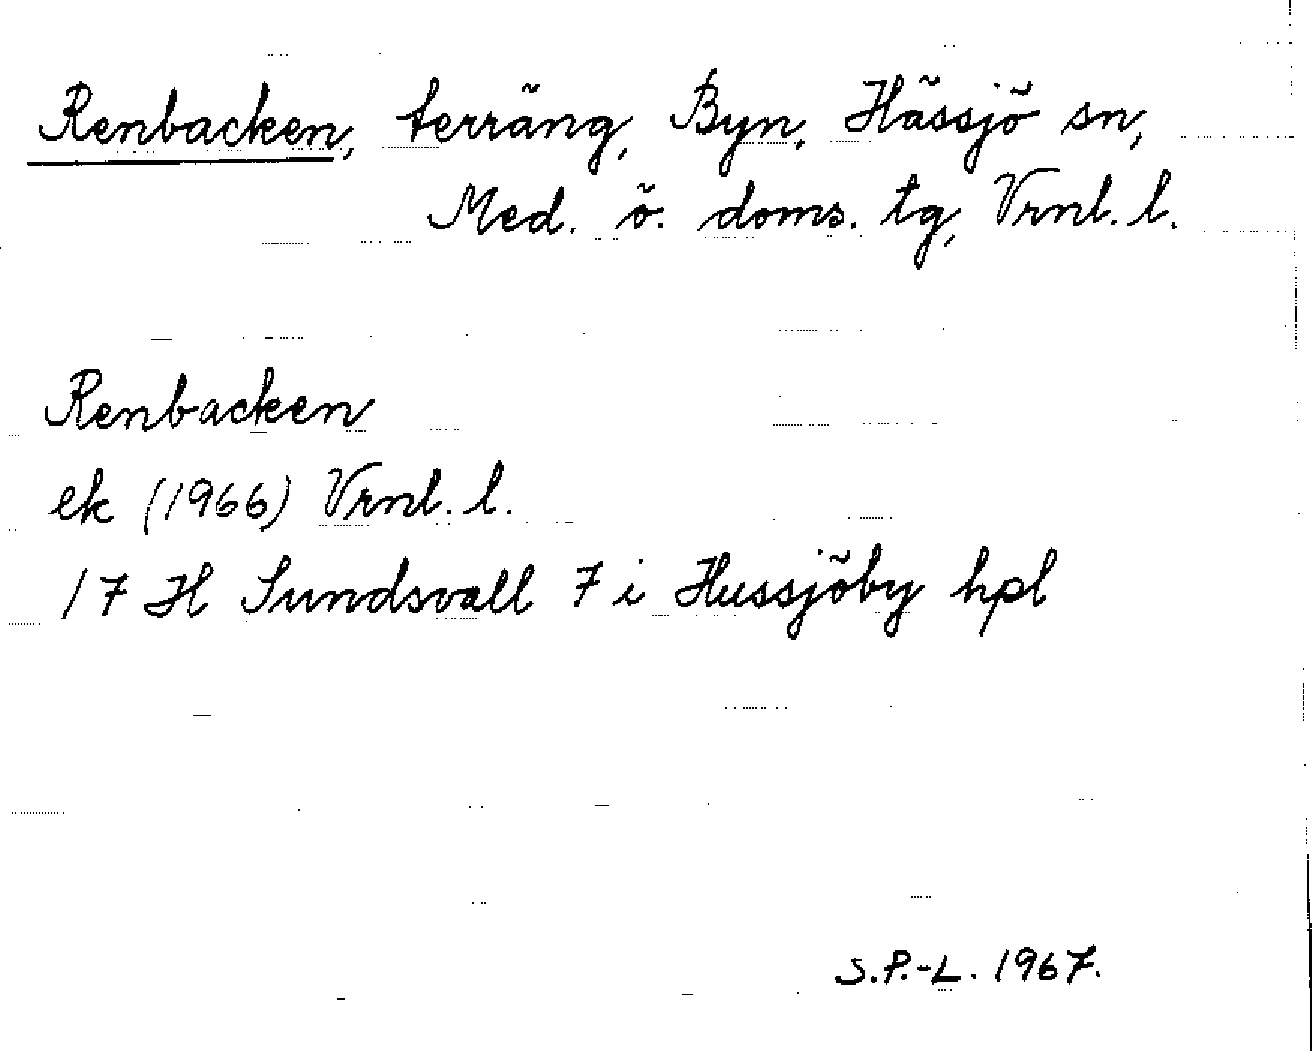 Renbacken, terräng, Byn, Hässjö sn,
Med. ö. doms. tg, Vrnl. l.
Renbacken
ek (1966) Vrnl. l.
17 H Sundsvall 7 i Hussjöby hpl
S.P.-L. 1967.